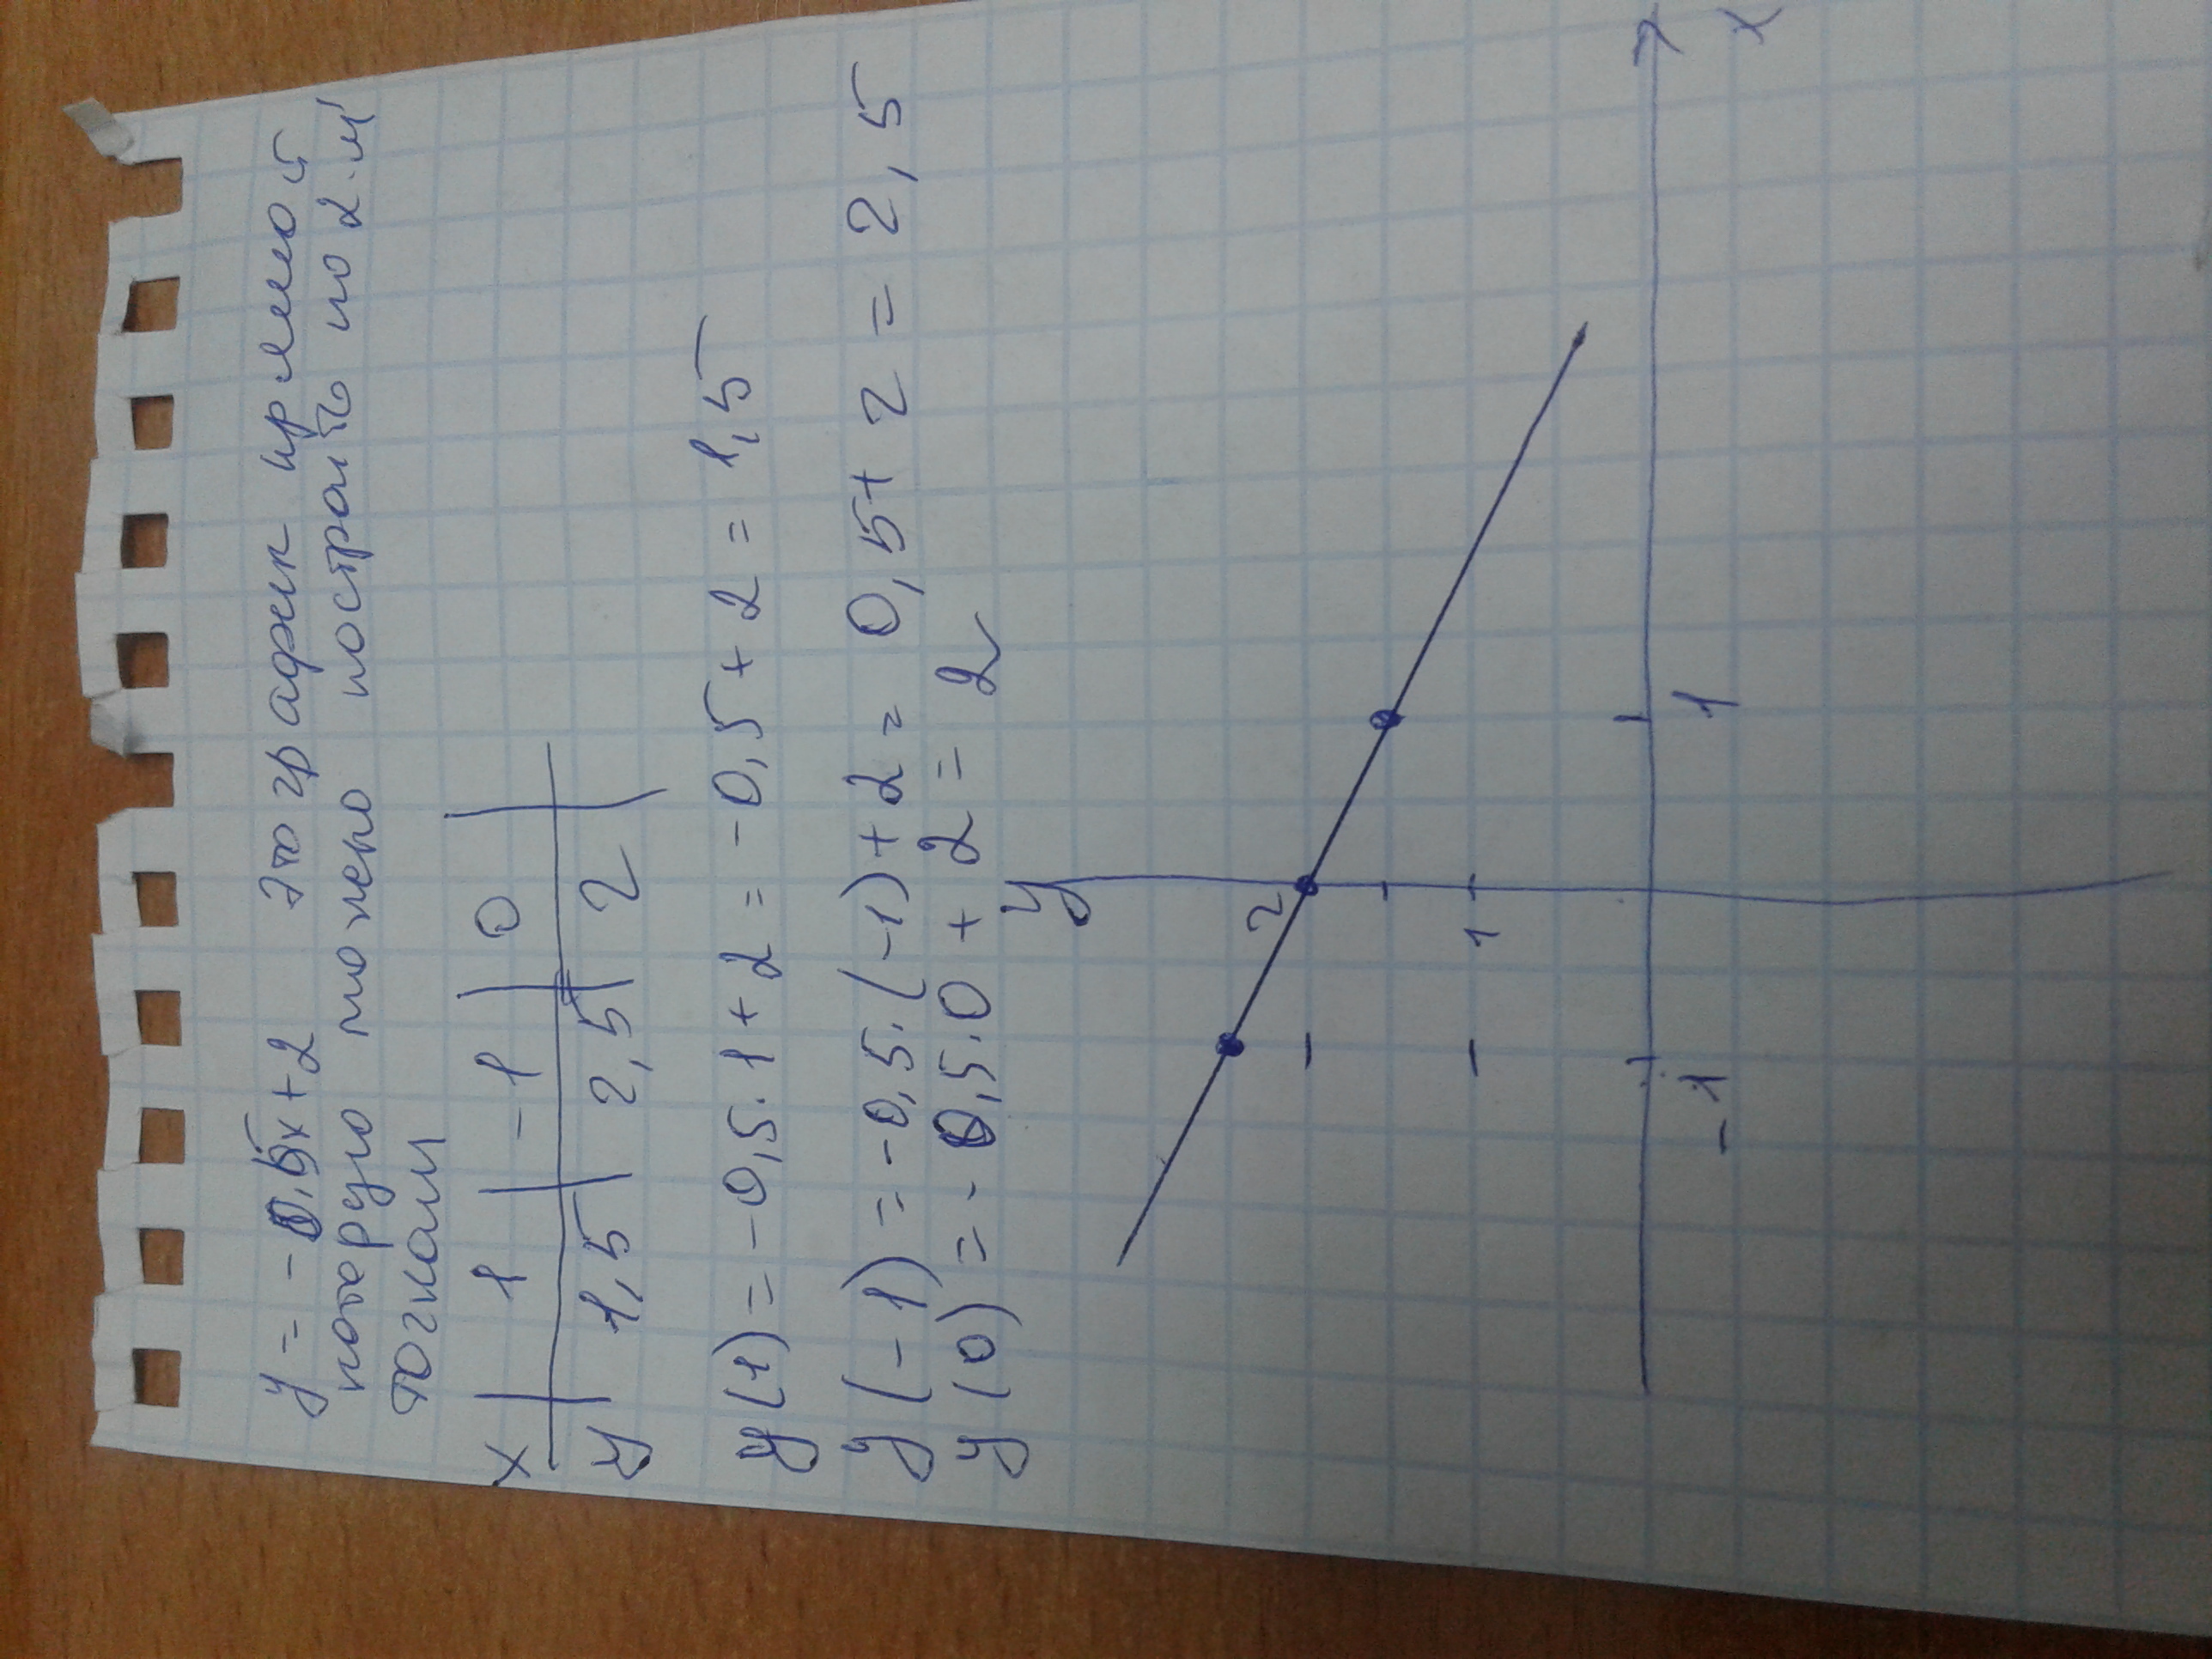 y = -0,5x+2 это график прямой
которую можно построить по 2-м
точкам
x 1 -1 0
y 1,5 2,5 2
y(1) = -0,5·1+2 = -0,5+2 = 1,5
y(-1) = -0,5·(-1)+2 = 0,5+2 = 2,5
y(0) = -0,5·0+2 = 2
y
2
1
-1 1 x